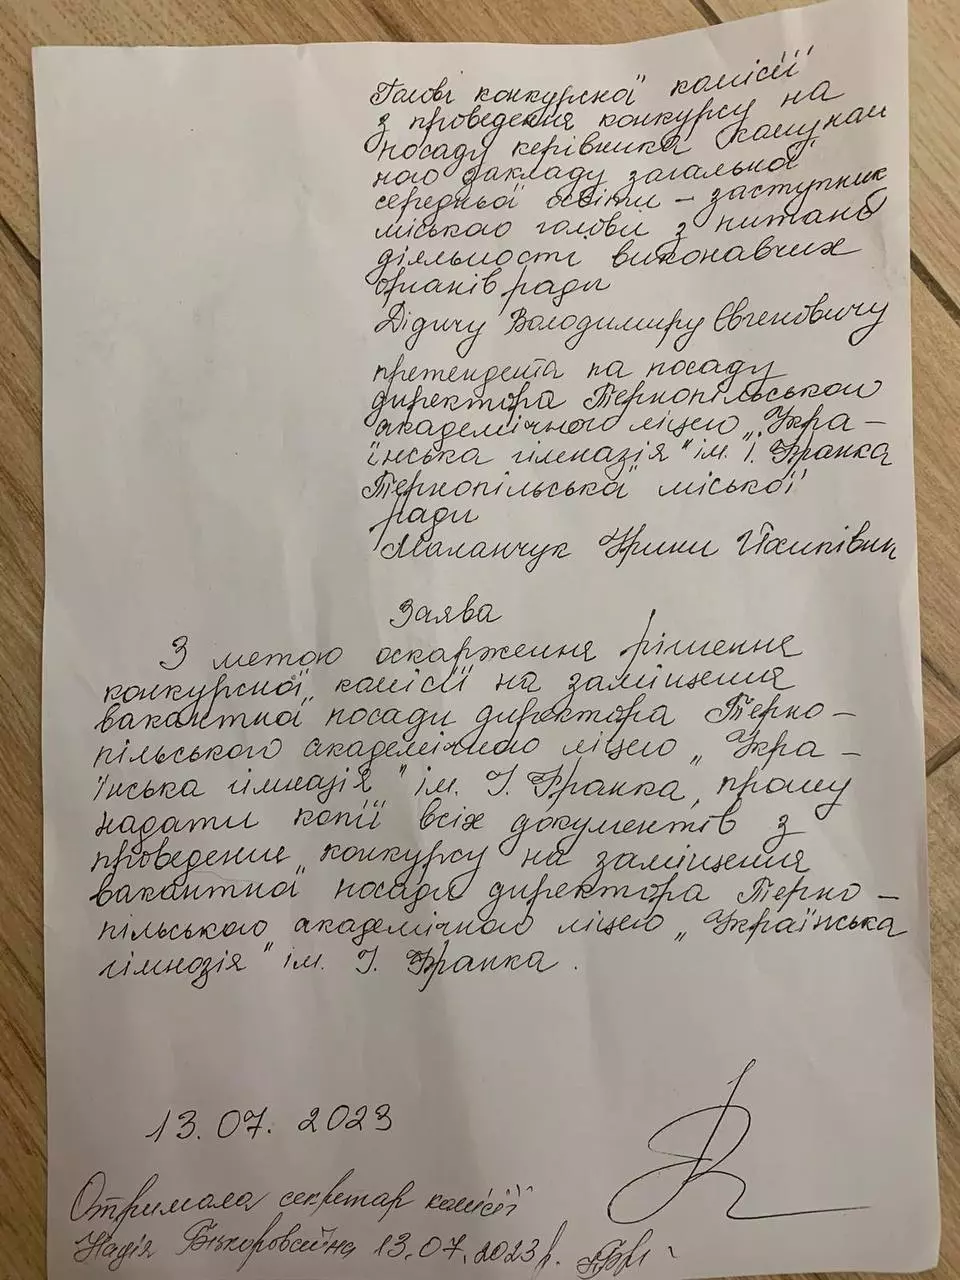 Голові конкурсної комісії
з проведення конкурсу на
посаду керівника комуналь
ного закладу загальної
середньої освіти – заступник
міського голови з питань
діяльності виконавчих
органів ради
Дідичу Володимиру Євгеновичу
претендента на посаду
директора Тернопільського
академічного ліцею „Укра–
їнська гімназія" ім. І. Франка
Тернопільської міської
ради
Маланчук Ірини Йосипівни
Заява
З метою оскарження рішення
конкурсної комісії на заміщення
вакантної посади директора Терно–
пільського академічного ліцею „Укра–
їнська гімназія" ім. І. Франка, прошу
надати копії всіх документів з
проведення конкурсу на заміщення
вакантної посади директора Терно–
пільського академічного ліцею „Українська
гімназія" ім. І. Франка.
13.07.2023
Отримала секретар комісії
Надія 13.07.2023р.